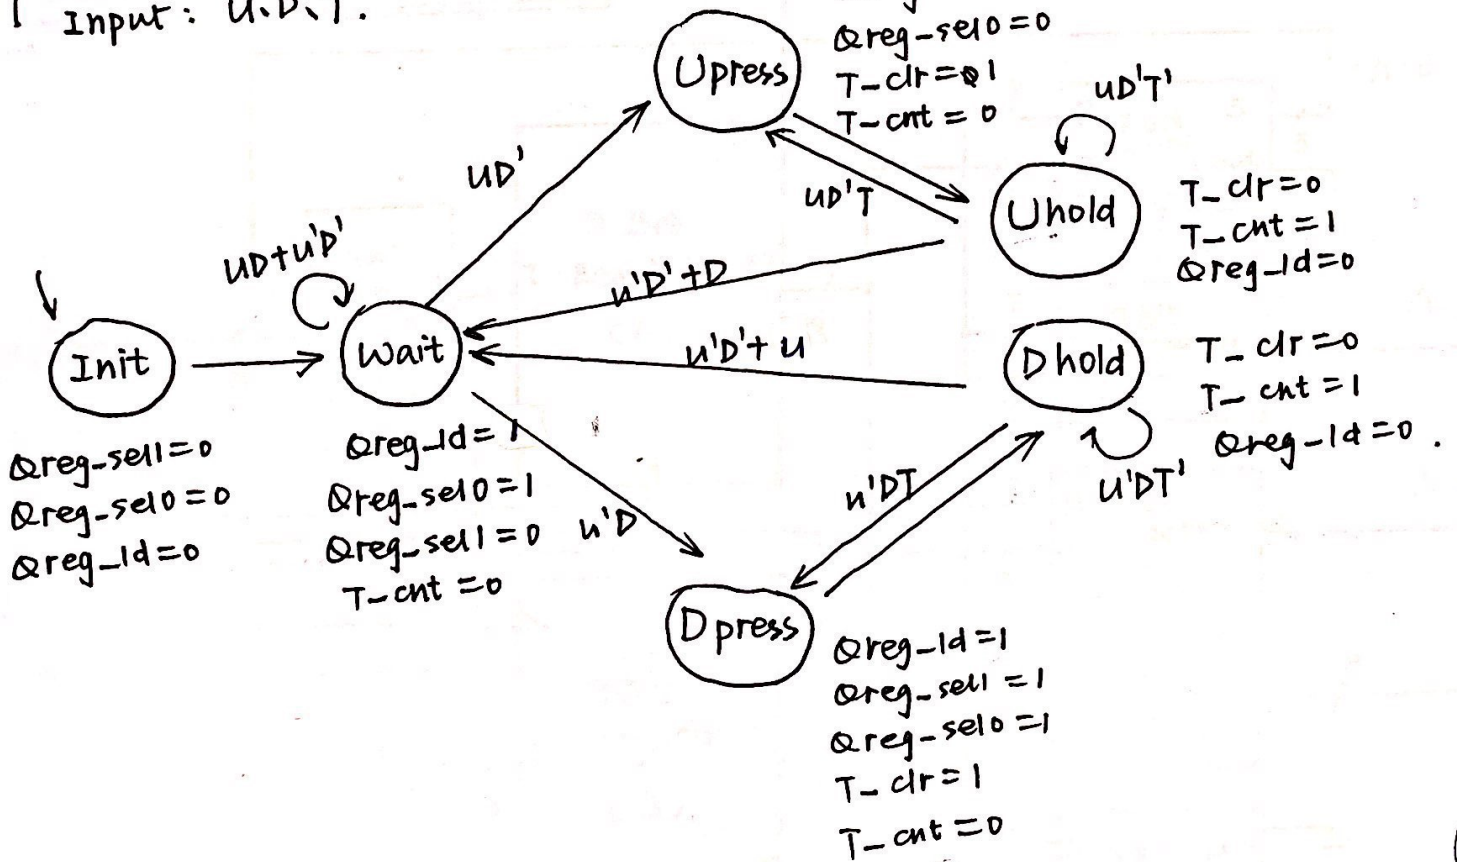 Input: U, D, T.
Upress
Qreg-sel0=0
T-clr=1
T-cnt=0
UD'T'
UD'
UD'T
Uhold
T-clr=0
T-cnt=1
Qreg-ld=0
UD+U'D'
U'D'+D
Init
Wait
U'D'+U
Dhold
T-clr=0
T-cnt=1
Qreg-ld=0.
Qreg-sel1=0
Qreg-sel0=0
Qreg-ld=0
Qreg-ld=1
Qreg-sel0=1
Qreg-sel1=0
T-cnt=0
U'D
U'DT
U'DT'
Dpress
Qreg-ld=1
Qreg-sel1=1
Qreg-sel0=1
T-clr=1
T-cnt=0